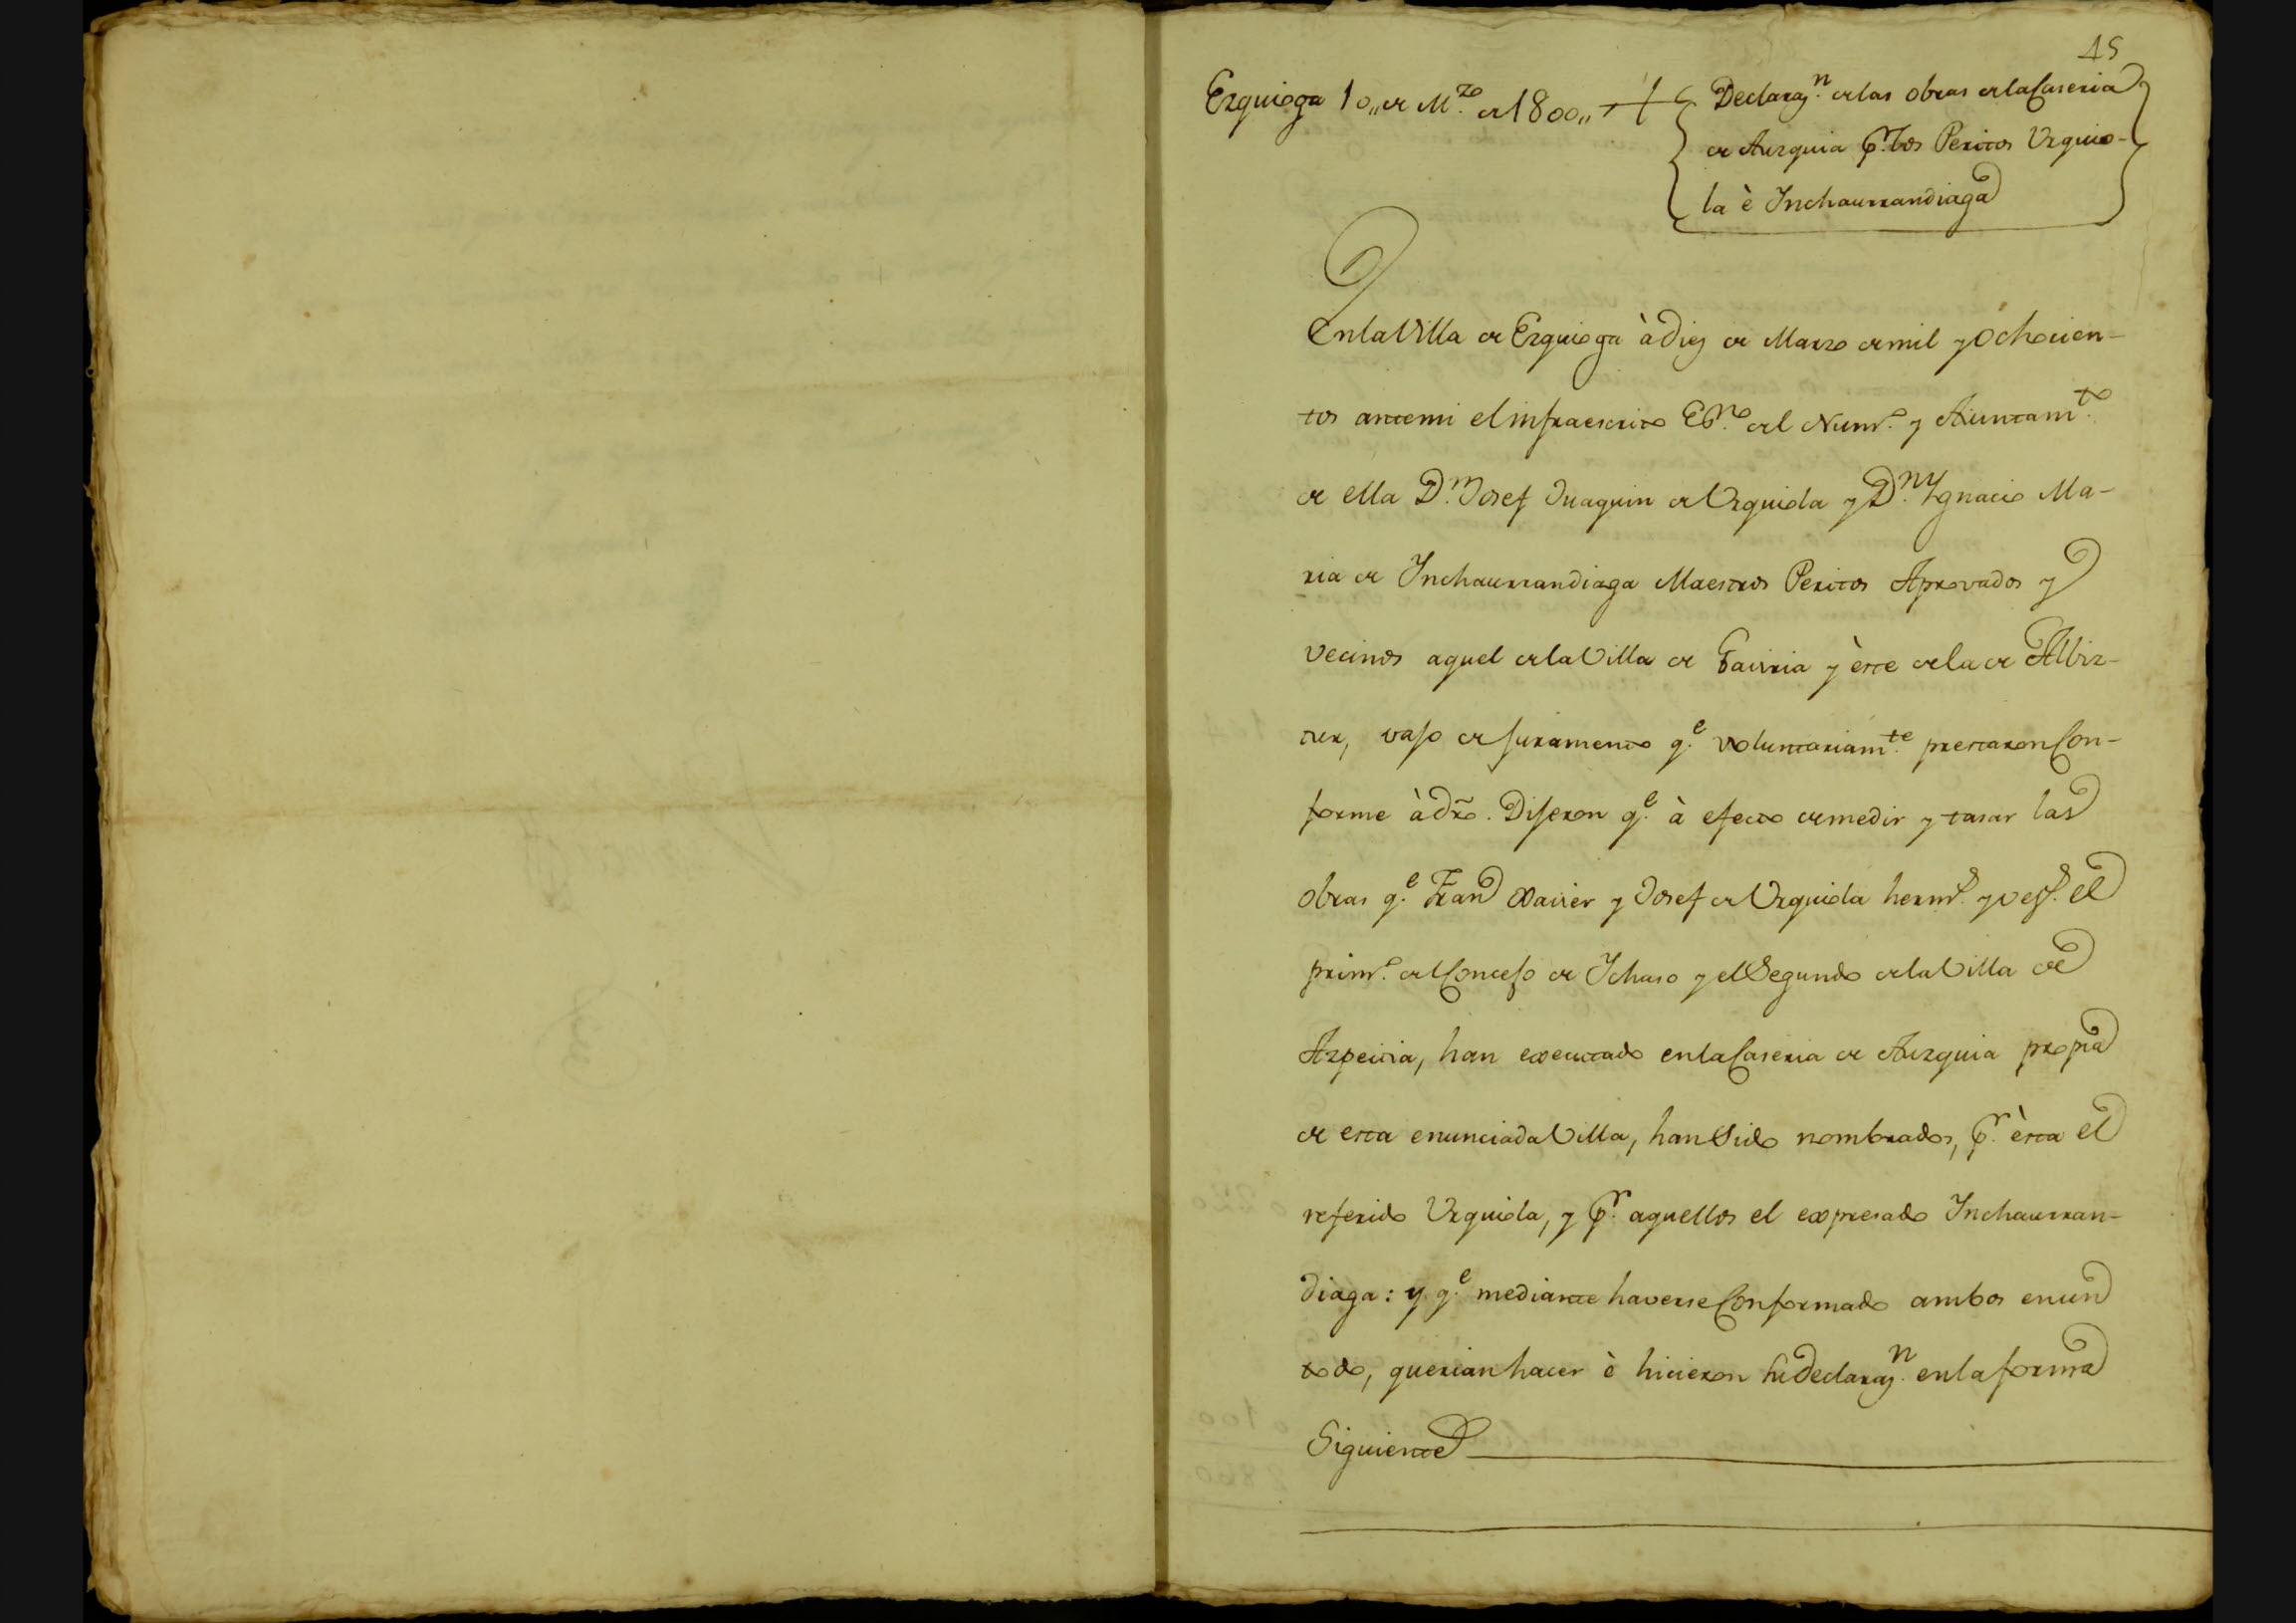 45
Ezquioga 10,, de M.zo de 1800,,
Declaraz.n de las obras de la Caseria
de Auzquia p.r los Peritos Urquio-
la è Inchaurrandiaga
En la Villa de Ezquioga à diez de Marzo de mil y Ochocien-
tos ante mi el infraescrito Es.no del Num.o y Aiuntam.to
de ella D.n Josef Juaquin de Urquiola y D.n Ygnacio Ma-
ria de Inchaurrandiaga Maestros Peritos Aprovados y
vecinos aquel de la Villa de Gaviria y èste de la de Albiz-
tur, vajo de juramento q.e voluntariam.te prestaron Con-
forme à dro. Dijeron q.e à efecto de medir y tasar las
obras q.e Fran.co Xavier y Josef de Urquiola herm.s y vez.s el
prim.o del Concejo de Ichaso y el Segundo de la Villa de
Azpeitia, han executado en la Caseria de Auzquia propia
de esta enunciada Villa, han Sido nombrados, p.r èsta el
referido Urquiola, y p.r aquellos el expresado Inchaurran-
diaga: y q.e mediante haverse Conformado ambos en un
todo, querian hacer è hicieron su declaraz.n en la forma
Siguiente